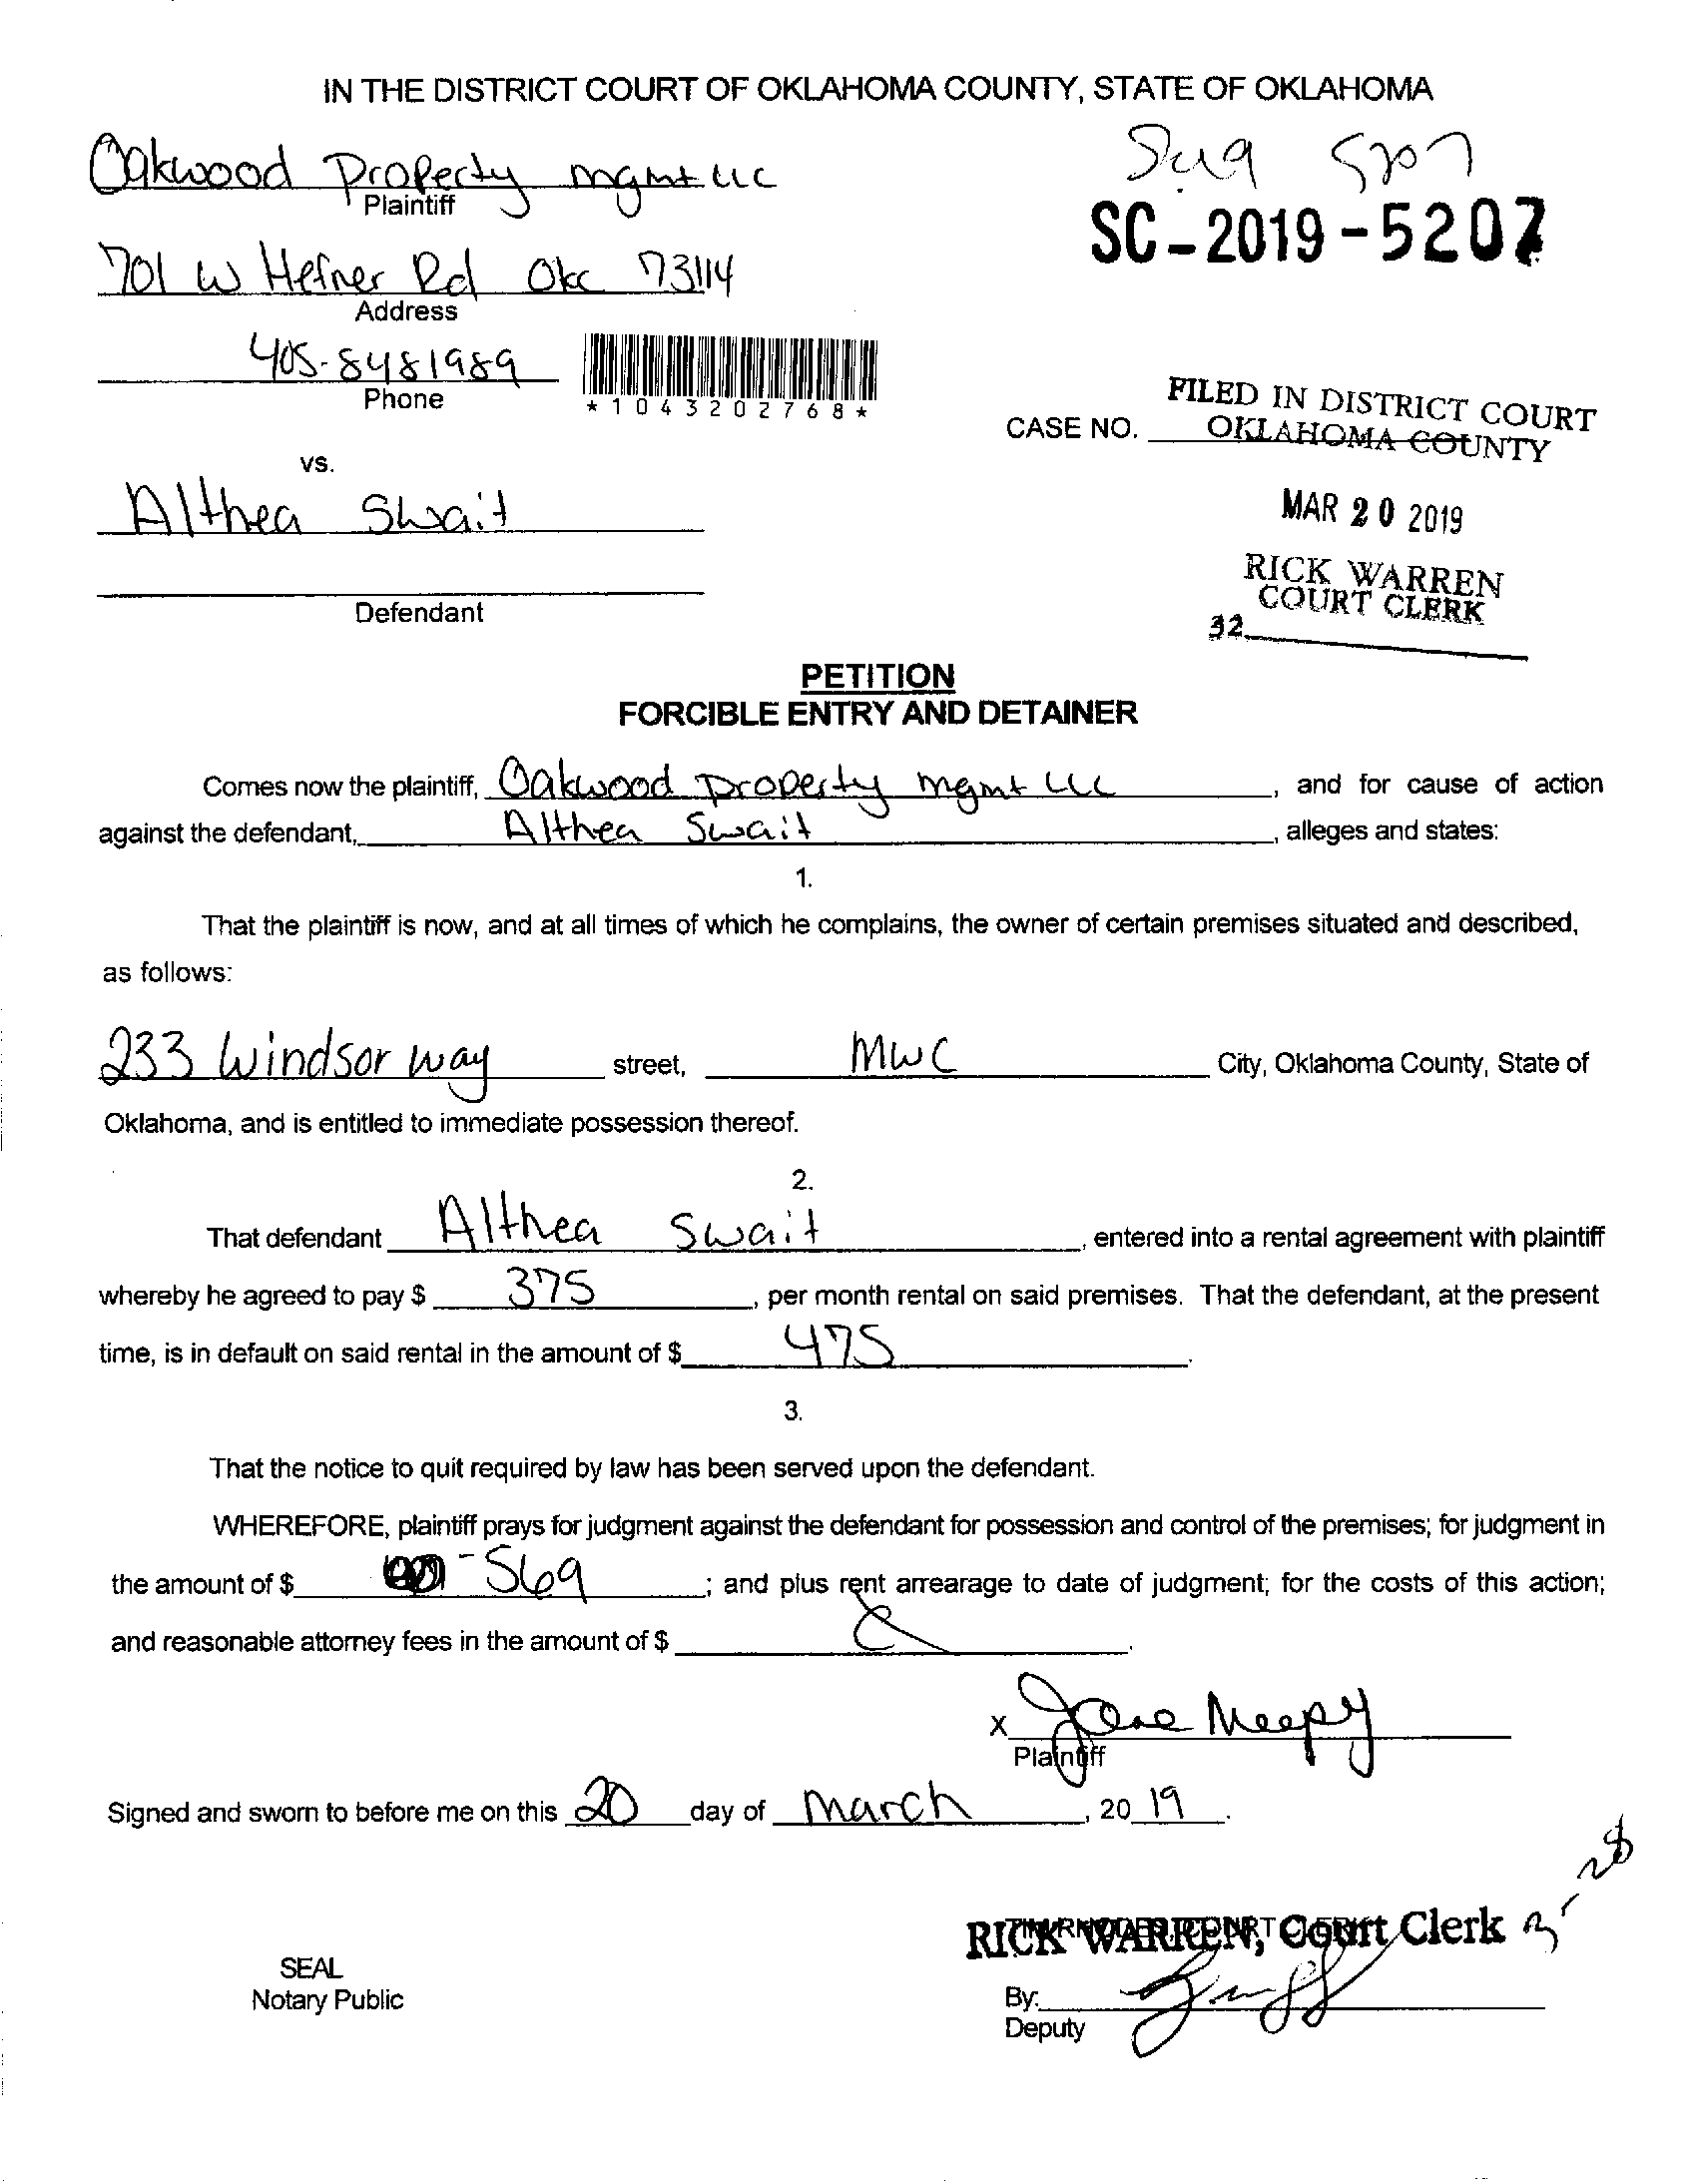 IN THE DISTRICT COURT OF OKLAHOMA COUNTY, STATE OF OKLAHOMA
Oakwood Property mgmt LLC
Plaintiff
SC-2019-5207
701 W Hefner Rd Okc 73114
Address
405-8481989
Phone
*1043202768*
FILED IN DISTRICT COURT
OKLAHOMA COUNTY
CASE NO.
vs.
Althea Swait
MAR 20 2019
RICK WARREN
COURT CLERK
32
Defendant
PETITION
FORCIBLE ENTRY AND DETAINER
Comes now the plaintiff, Oakwood Property mgmt LLC, and for cause of action
against the defendant, Althea Swait, alleges and states:
1.
That the plaintiff is now, and at all times of which he complains, the owner of certain premises situated and described,
as follows:
233 Windsor way street, MWC City, Oklahoma County, State of
Oklahoma, and is entitled to immediate possession thereof.
2.
That defendant Althea Swait, entered into a rental agreement with plaintiff
whereby he agreed to pay $ 375, per month rental on said premises. That the defendant, at the present
time, is in default on said rental in the amount of $ 475.
3.
That the notice to quit required by law has been served upon the defendant.
WHEREFORE, plaintiff prays for judgment against the defendant for possession and control of the premises; for judgment in
the amount of $ 569; and plus rent arrearage to date of judgment; for the costs of this action;
and reasonable attorney fees in the amount of $.
X
Plaintiff
Signed and sworn to before me on this 20 day of March, 2019.
RICK WARREN, Court Clerk
SEAL
Notary Public
By:
Deputy